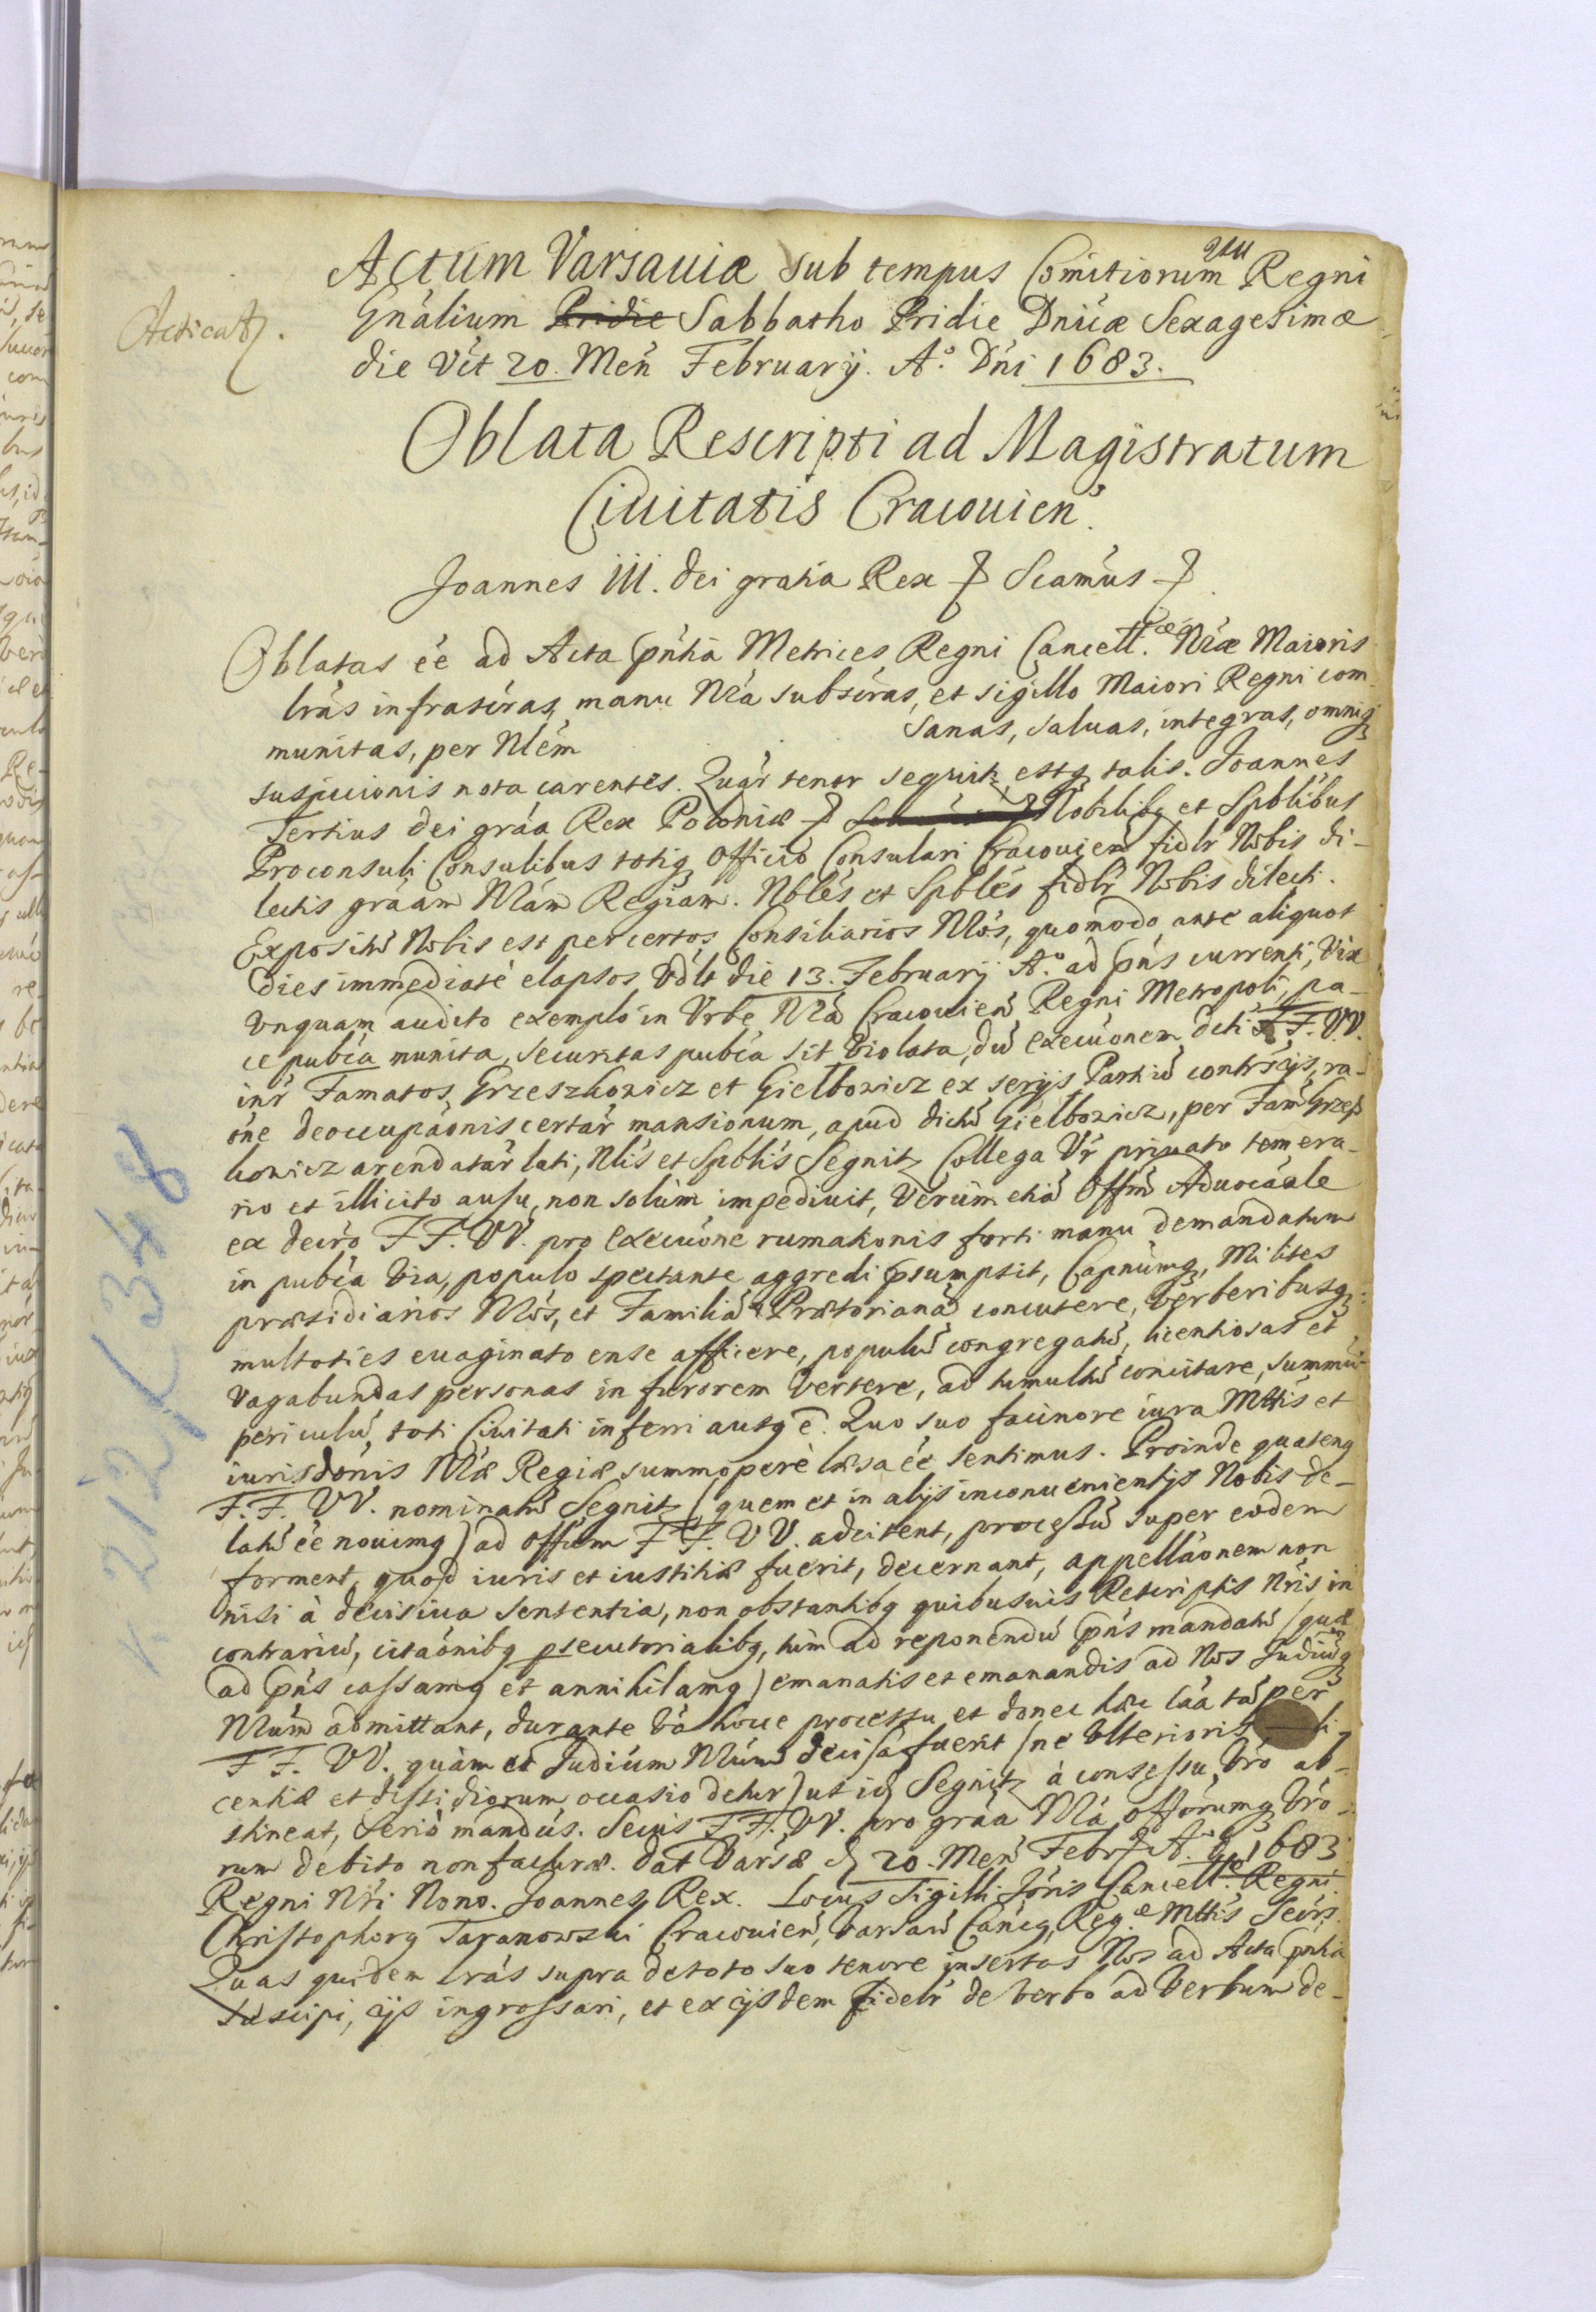 Acticat.
Actum Varsaviæ sub tempus Comitiorum Regni
Gnâlium Pridie Sabbatho Pridie Dnîcæ Sexagesimæ
die Vĩt 20. Meń February. A.° Dńi 1683.
Oblata Rescripti ad Magistratum
Civitatis Cracovień.
Joannes III. dei gratia Rex Scamús
Oblatas ée ad Acta pńtia Metrices Regni Cancell. Nræ Maioris
lrás infrascras, manu Nrá subscras, et sigillo Maiori Regni com
munitas, per Nlém sanas, saluas, integras, omniq
suspicionis nota carentes. Quar tenor sequit estq talis. Joannes
Tertius dei gráa Rex Poloniæ Nobilibq et Spblibus
Proconsuli Consulibus totiq Officio Consulari Cracovień fidlr Nobis di-
lectis gráam Nrám Regiam. Nblés et Spblés fidlr Nobis dilecti.
Expositũ Nobis est per certos Consiliarios Nrós, quomodo ante aliquot
dies immediaté elapsos Vdlt die 13. February A.° ad pńs currenti, Vix
unquam audito exemplo in Urbe Nrá Cracovień Regni Metropoli, pa-
ce pubca munita, securitas pubca sit violata, dũ execuonem dcti F F. VV.
intr Famatos Grzeszkowicz et Gielbowicz ex serys Partiũ contrscys, ra-
óne deoccupaónis certar mansionum, apud dictũ Gielbowicz, per Fam Grzesz
kowicz arendatar lati, Nlis et Spblis Segnitz Collega Vr privato temera-
rio et illicito ausu, non solùm impedivit, verùm etiã Offm Aduocáale
ex decro F F. VV. pro execuóne rumationis forti manu demandatum
in pubca via, populo spectante aggredi psumpsit, Capnúmq, Milites
præsidiarios Nrós, et Familiã Prætorianã concutere, verberibusq:
multoties evaginato ense afficere, populũ congregatũ, licentiosas et
vagabundas personas in furorem vertere, ad tumultũ concitare, summũ
periculũ, toti Civitati inferri ausq é. Quo suo facinore iura Mttis et
iurisdónis Nræ Regiæ summoperè læsa ée sentimus. Proinde quatenq
F. F. VV. nominatũ Segnitz (quem et in alijs inconuenientijs Nobis de-
latũ ée nouimq) ad officm F F. VV. adcitent, processũ super eodem
forment, quod iuris et iustitiæ fuerit, decernant, appellaónem non
nisi à decisiva sententia, non obstantibq quibusuis Rescriptis Nris in
contrariũ, citaónibq psecutorialibq, tùm ad reponendũ pńs mandatũ (quæ
ad pńs cassamq et annihilamq) emanatis et emanandis ad Nos Judiũq
Nrúm admittant, durante vó hocce processu et donec hæc cáa tã per
F F. VV. quàm et Judiúm Nrúm decisa fuerit (ne ulterioris li
centiæ et dissidiorum occasio detur) ut id Segnitz à consessu vro ab-
stineat, seriò mandús. Secus F F. VV. pro gráa Nrá offorumq vro-
rum debito non facturæ. Dat Varsæ d 20. Meń Febr A. D 1683
Regni Nri Nono. Joannes Rex. Locus Sigilli Joris Cancell. Regni.
Christophorq Taranowski Cracovień, Varsaviń Cancq, Reg. Mttis Secrs.
Quas quidem lrás supra de toto suo tenore insertas Nos ad Acta pńtia
suscipi, ijs ingrossari, et ex ijsdem fidelr de verbo ad verbum de-